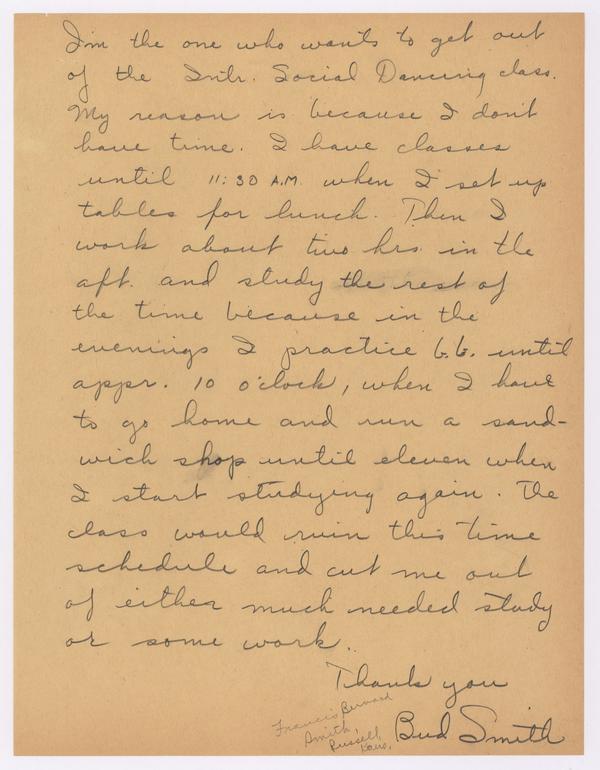 I'm the one who wants to get out
of the Intr. Social Dancing class.
My reason is because I don't
have time. I have classes
until 11:30 A.M. when I set up
tables for lunch. Then I
work about two hrs. in the
aft. and study the rest of
the time because in the
evenings I practice b.b. until
appr. 10 o'clock, when I have
to go home and run a sand-
wich shop until eleven when
I start studying again. The
class would ruin this time
schedule and cut me out
of either much needed study
or some work.
Thank you
Bud Smith
Francis Bernard
Smith,
Russell,
Kans.